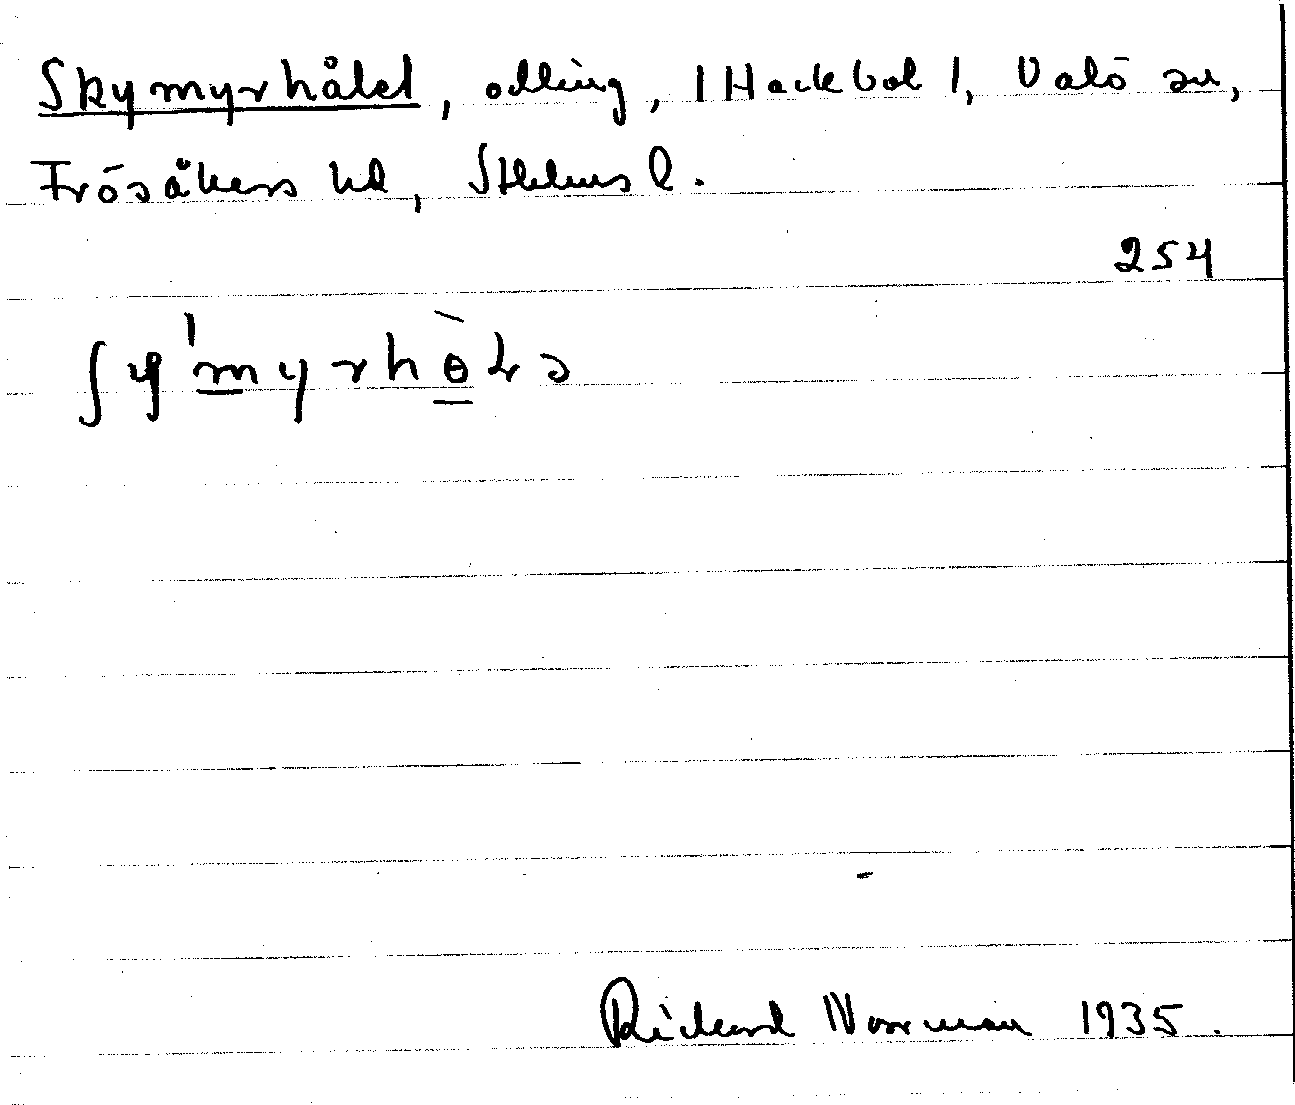 Skymyrhålet, odling, /Hackbol/, Valö sn,
Frösåkers hd, Sthlms l.
254
Richard Norrman 1935.